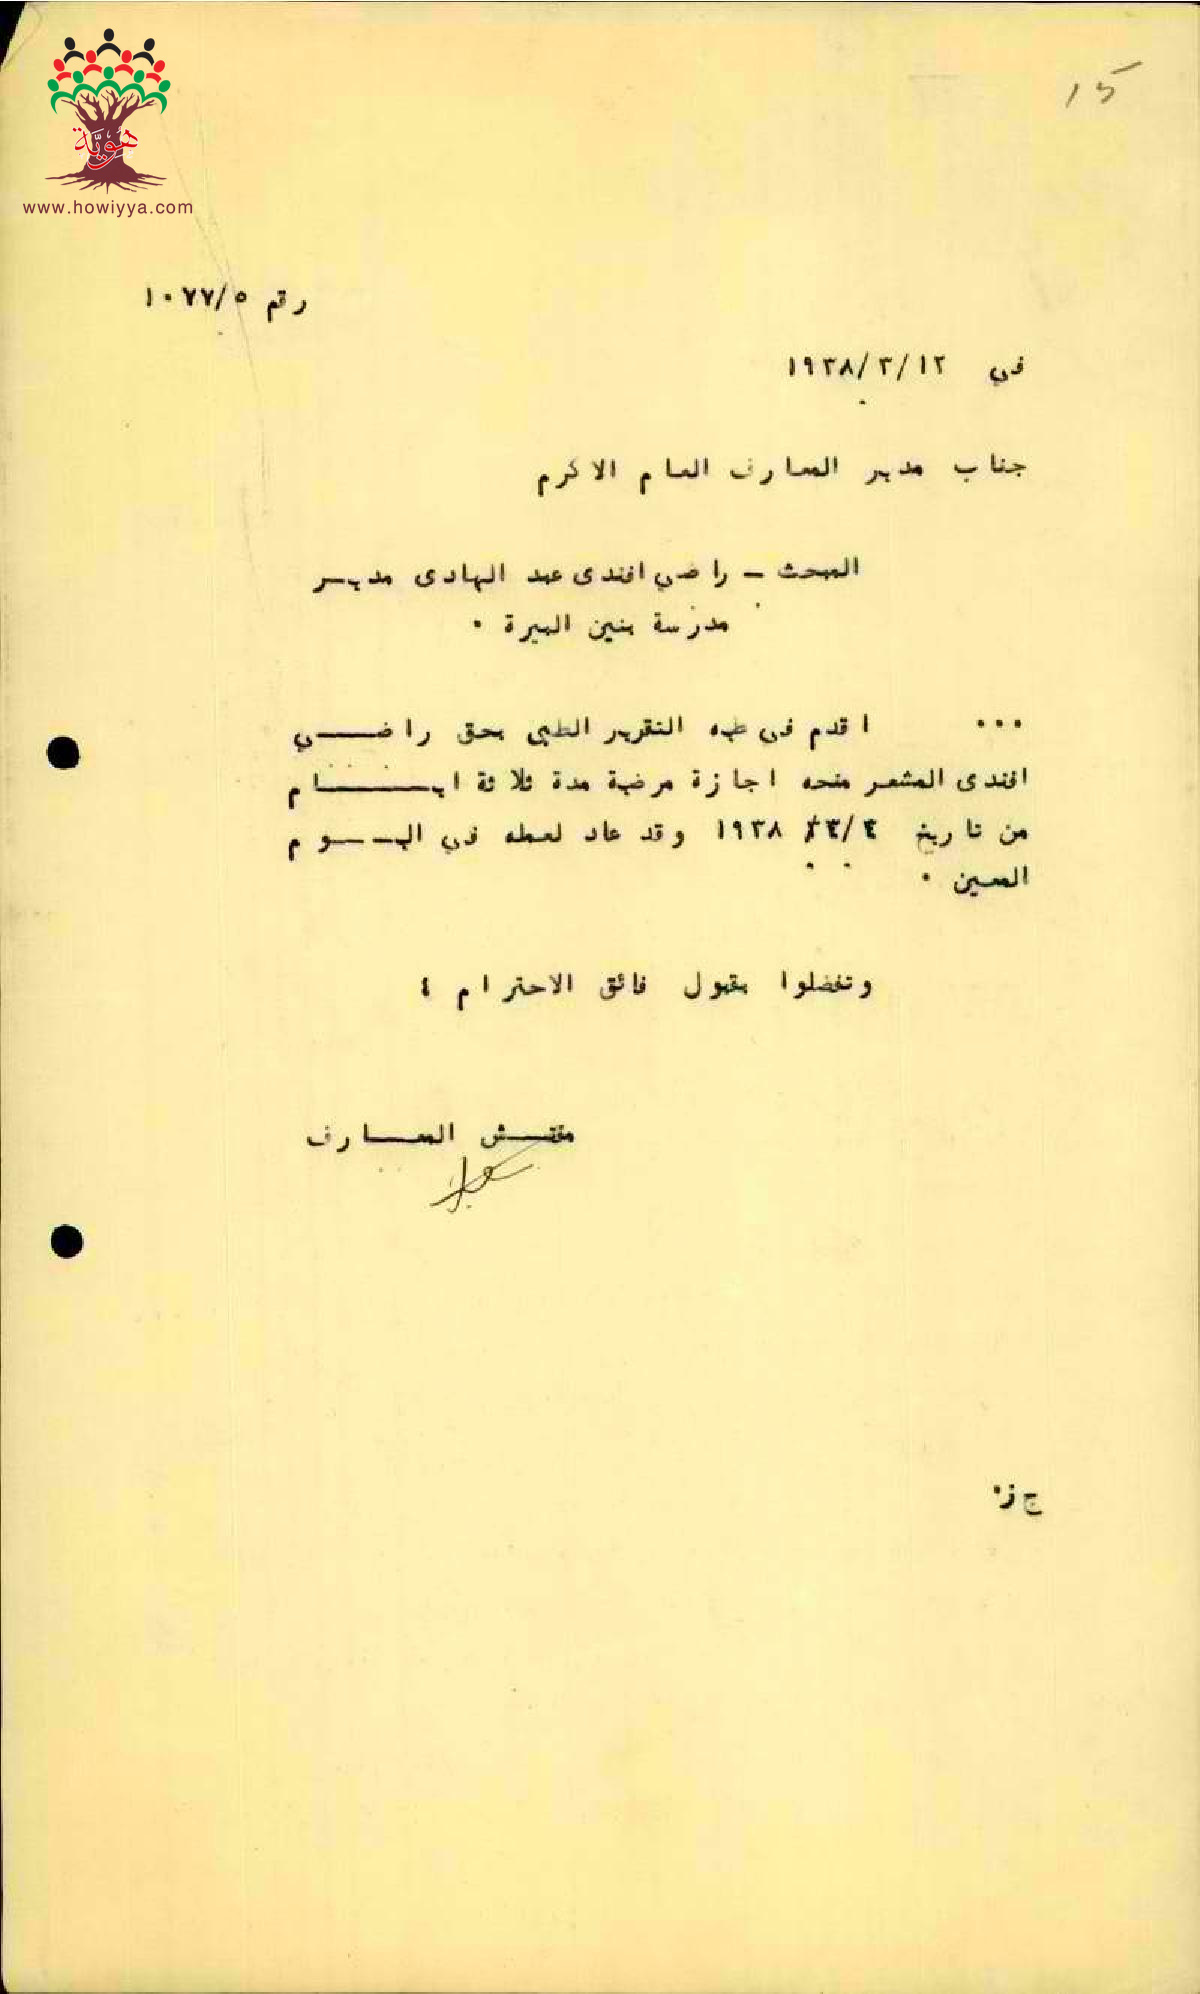 15
هوية
www.howiyya.com
رقم ١٠٧٧/٥
في ١٩٣٨/٣/١٢
جناب مدير المعارف العام الاكرم
المبحث - راضي افندى عبد الهادى مديـر
مدرسة بنين البيرة ٠
٠٠٠ اقدم في طيه التقرير الطبي بحق راضـــي
افندى المشعر منحه اجازة مرضية مدة ثلاثة ايــــام
من تاريخ ٣/٤/ ١٩٣٨ وقد عاد لعمله في اليـــوم
المعين ٠
وتفضلوا بقبول فائق الاحترام ؛
مفتــش المعــارف
ج ز٠